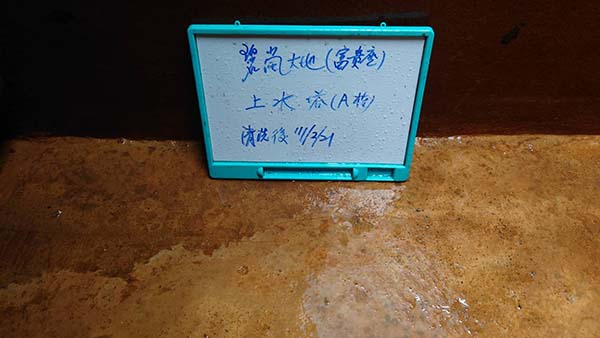 碧嵐大地(富貴座)
上水塔(A棟)
清洗後 111/3/21